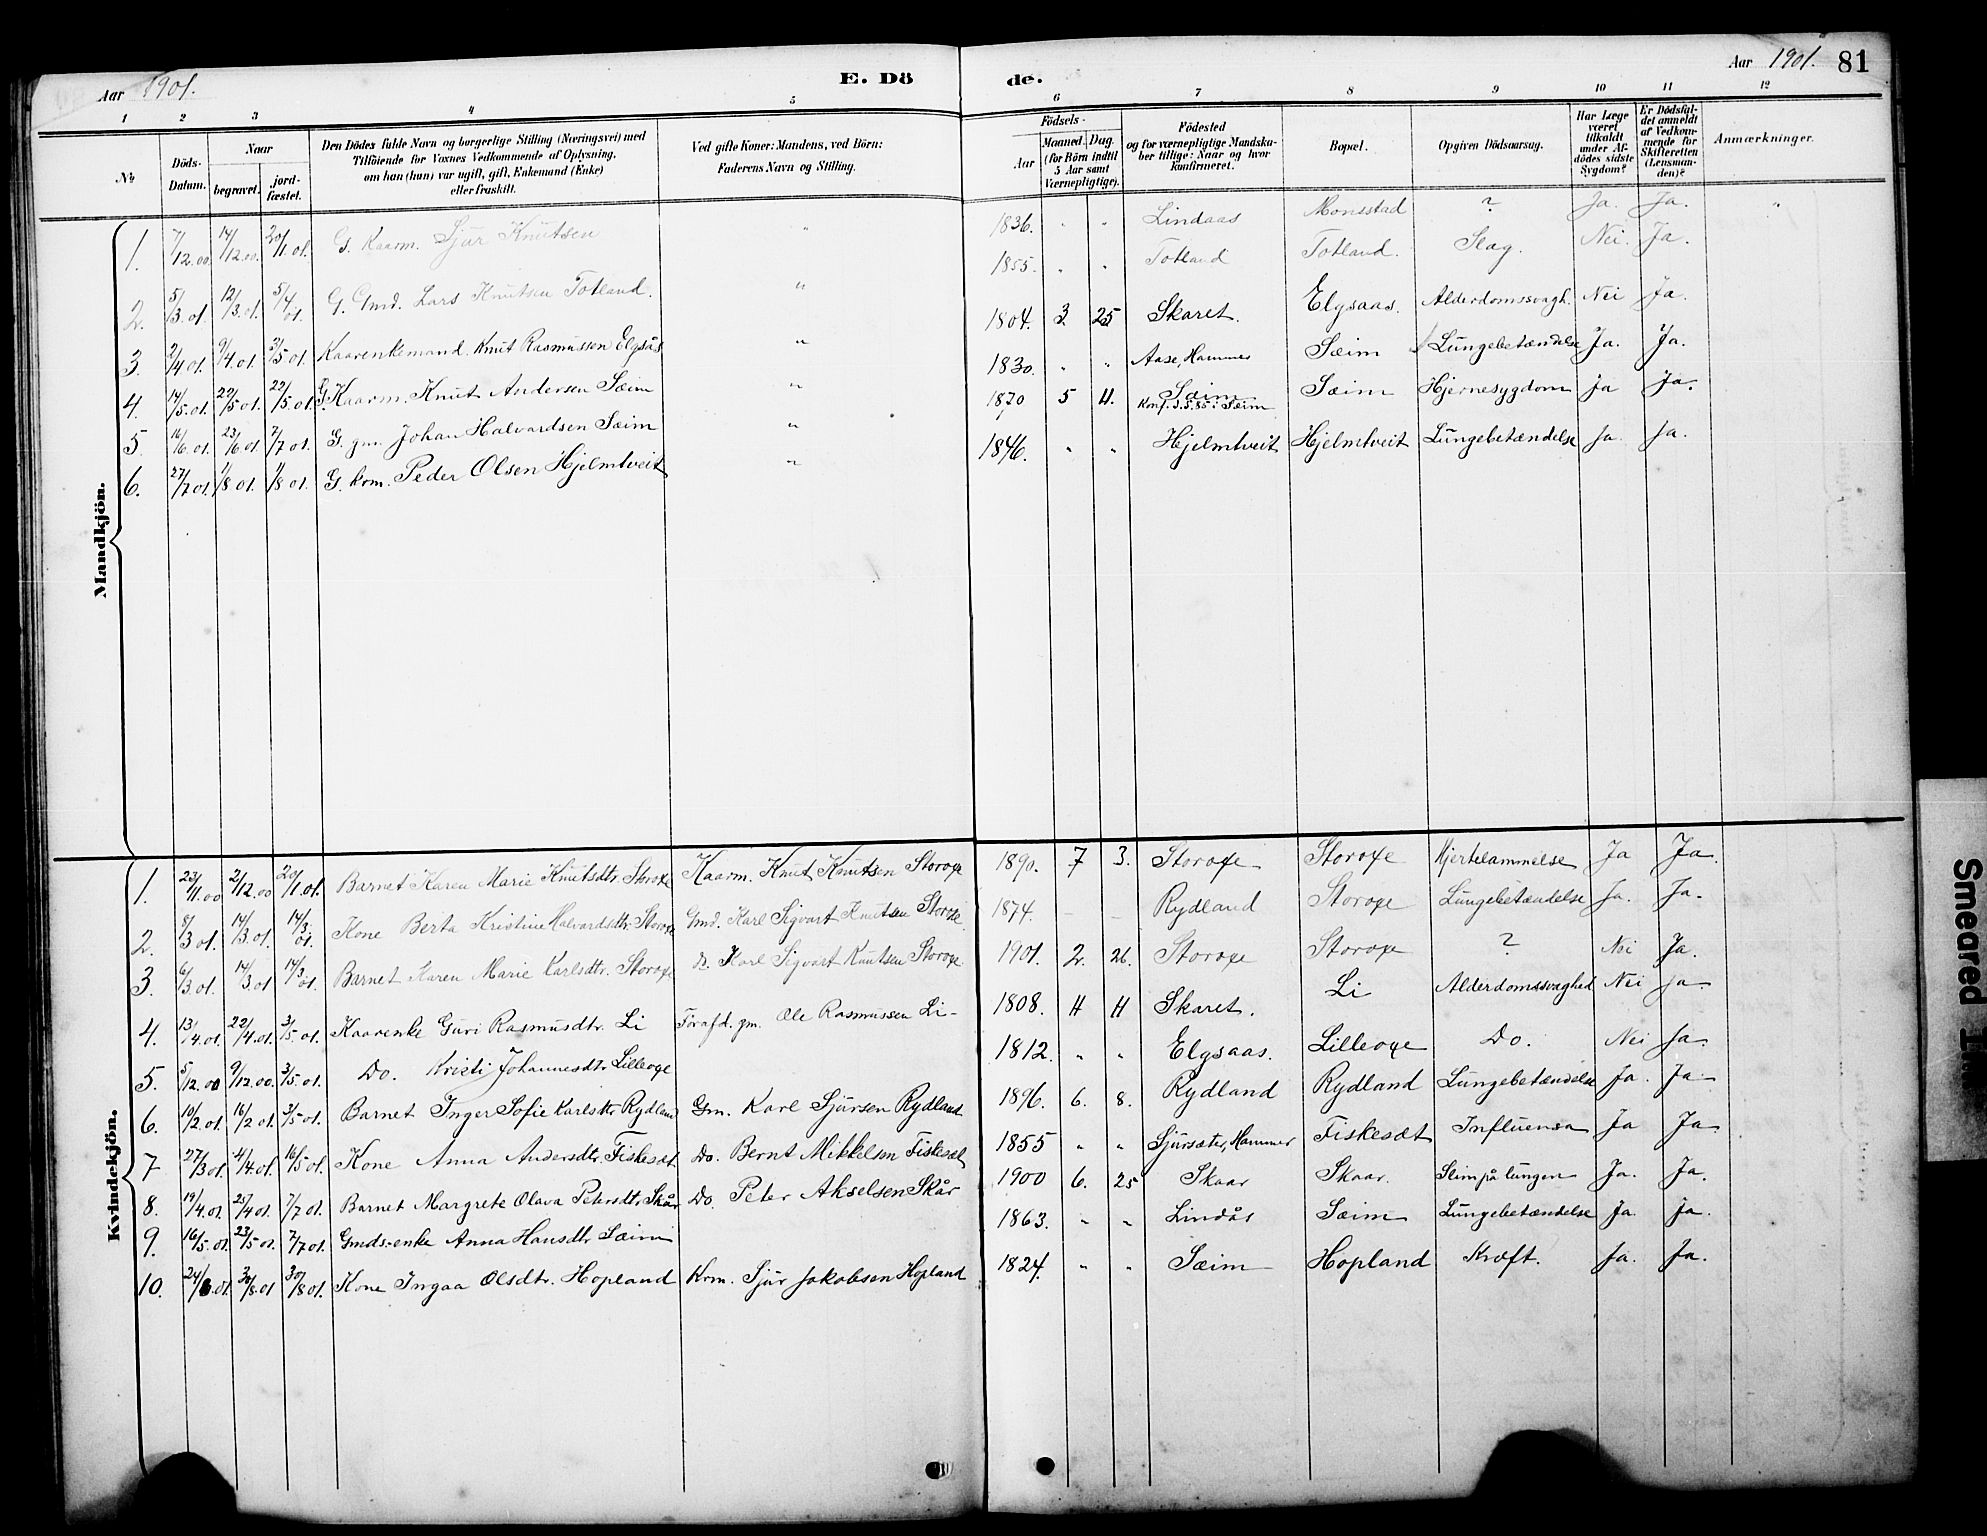 Aar 1901. E. Dö de. Aar 1901. 81
1 2 3 4 5 6 7 8 9 10 11 12
No
Döds-Datum.
Naar
begravet.
jord-fæstet.
Den Dödes fulde Navn og borgerlige Stilling (Næringsvei) med
Tilföiende for Voxnes Vedkommende af Oplysning,
om han (hun) var ugift, gift, Enkemand (Enke)
eller fraskilt.
Ved gifte Koner: Mandens, ved Börn:
Faderens Navn og Stilling.
Födsels-
Aar
Maaned. Dag.
(for Börn indtil
5 Aar samt
Værnepligtige).
Födested
og for værnepligtige Mandska-
ber tillige: Naar og hvor
konfirmeret.
Bopæl.
Opgiven Dödsaarsag.
Har Læge
været
tilkaldt
under Af-
dödes sidste
Sygdom?
Er Dödsfal-
det anmeldt
af Vedkom-
mende for
Skifteretten
(Lensman-
den)?
Anmærkninger.
Mandkjön.
1. 7/12.00 14/12.00 20/1.01. G. Kaarm. Sjur Knutsen " 1836. " " Lindaas Monsstad ? Ja. Ja. "
2. 5/3.01. 12/3.01. 5/4 01. G. Gmd. Lars Knutsen Totland. " 1855. " " Totland Totland. Slag. Nei. Ja.
3. 2/4 01. 9/4.01. 3/5.01. Kaarenkemand. Knut Rasmussen Elgsås " 1804. 3 25 Skaret. Elgsaas. Alderdomssvagh. Nei Ja.
4. 14/5.01. 22/5.01. 22/5.01. G. Kaarm. Knut Andersen Sæim " 1830. " " Aase, Hammer Sæim Lungebetændelse Ja. Ja.
5. 16/6.01. 23/6.01. 7/7.01. G. gm. Johan Halvardsen Sæim " 1870 5 4. Sæim Konf. 3.5.85 i Sæim Sæim Hjernesygdom Ja Ja.
6. 27/7.01. 1/8.01. 1/8.01. G. krm. Peder Olsen Hjelmtveit " 1846. " " Hjelmtveit Hjelmtveit Lungebetændelse Ja. Ja.
Kvindekjön.
1. 23/11.00 2/12.00 20/1.01. Barnet Karen Marie Knutsdtr. Storoxe Kaarm. Knut Knutsen Storoxe 1890. 7 3. Storoxe Storoxe Hjertelammelse Ja Ja.
2. 8/3 01. 14/3.01. 14/3. 01. Kone Berta Kristine Halvardsdtr. Storoxe Gmd. Karl Sigvart Knutsen Storoxe 1874. - - Rydland Storoxe Lungebetændelse Ja. Ja.
3. 6/3.01. 14/3.01 14/3. 01. Barnet Karen Marie Karlsdtr. Storoxe Karl Sigvart Knutsen Storoxe 1901. 2. 26. Storoxe Storoxe ? Nei Ja.
4. 13/4.01. 22/4.01. 3/5.01. Kaarenke Guri Rasmusdtr. Li Forafd. gm. Ole Rasmussen Li- 1808. 4 4 Skaret. Li Alderdomssvaghed Nei Ja.
5. 5/12.00 9/12.00. 3/5.01. Do. Kristi Johannesdtr. Lilleoxe 1812. " " Elgsaas. Lilleoxe Do. Nei Ja.
6. 10/2.01. 16/2 01. 3/5 01. Barnet Inger Sofie Karlsdtr Rydland Gm. Karl Sjursen Rydland 1896. 6. 8. Rydland Rydland Lungebetændelse Ja. Ja.
7 27/3 01. 4/4.01. 16/5 01. Kone Anna Andersdtr. Fiskesæt Do. Bernt Mikkelsen Fiskesæt 1855 " " Sjursæter, Hammer Fiskesæt Influensa Ja Ja
8. 19/4.01. 25/4 01. 7/7 01. Barnet Margrete Olava Petersdtr. Skår Do. Peter Akselsen Skår 1900 6. 25 Skaar Skaar. Slim på lungen Ja. Ja.
9. 16/5.01. 23/5 01. 7/7 01. Gmds-enke Anna Hansdtr Sæim 1863. " " Lindås Sæim Lungebetændelse Ja. Ja.
10. 24/8.01. 30/8.01 30/8 01. Kone Ingaa Olsdtr. Hopland Krm. Sjur Jakobsen Hopland 1824. " " Sæim Hopland Kræft. Ja. Ja.
Smeared